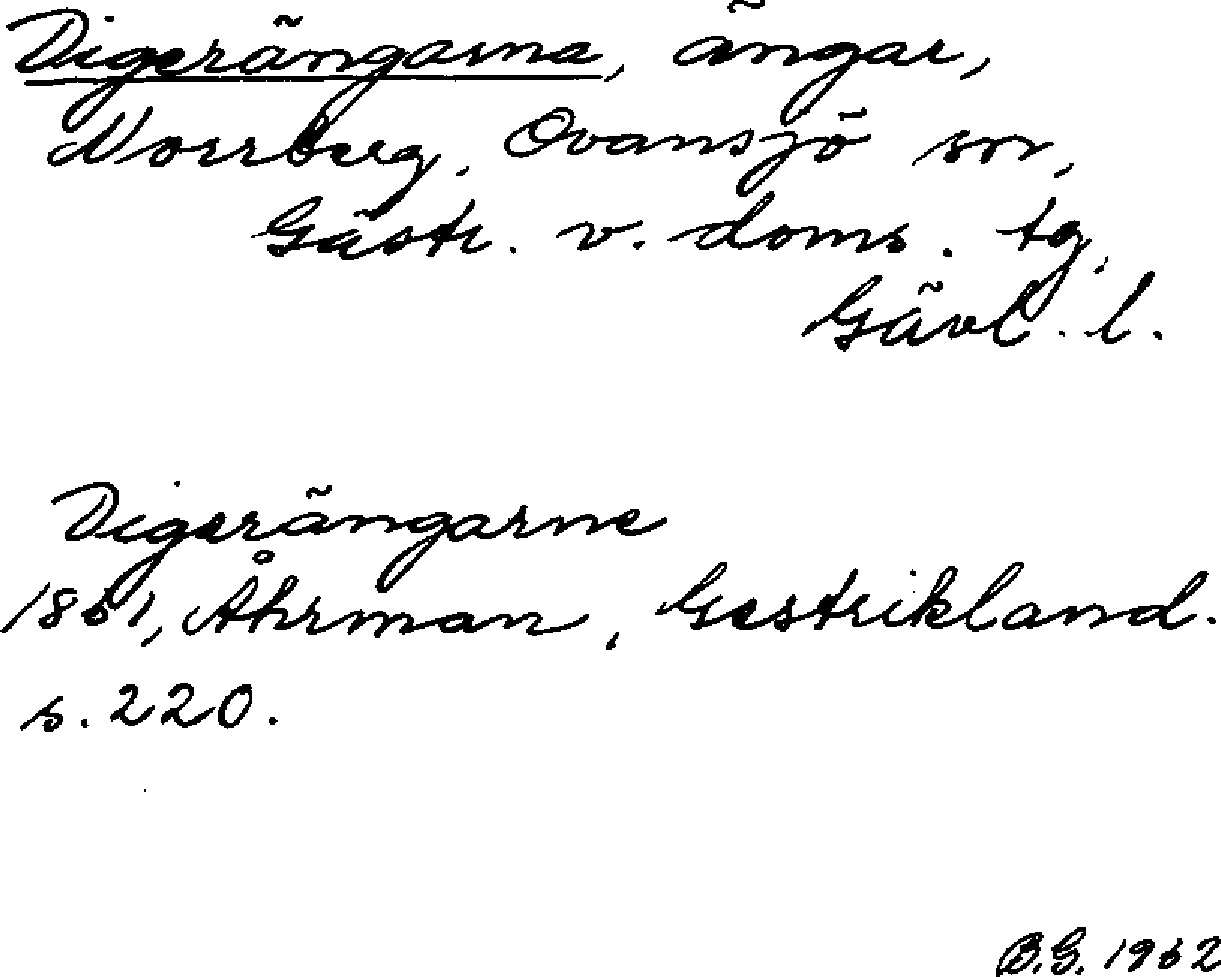 Digerängarna, ängar,
Norrberg, Ovansjö sn,
Gästr. v. doms. tg,
Gävl. l.
Digerängarne
1861, Åhrman, Gestrikland.
s. 220.
B.G. 1962